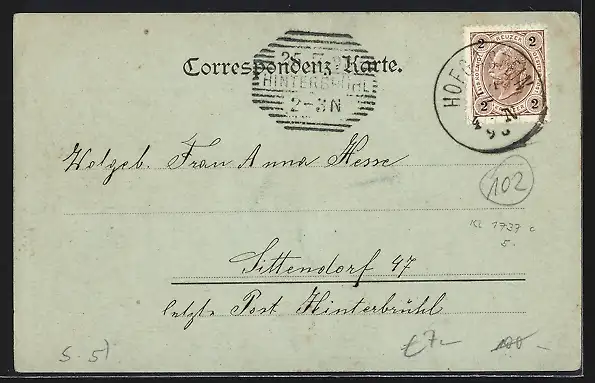 Correspondenz-Karte.
25
HINTERBRÜHL
2-3N
2 KREUZER 2
2 2
HOFG
4
Wolgeb. Frau Anna Hesse
102
Kl 1737 c
5.
Sittendorf 47
letzte Post Hinterbrühl
S. 5)
€7-
100-